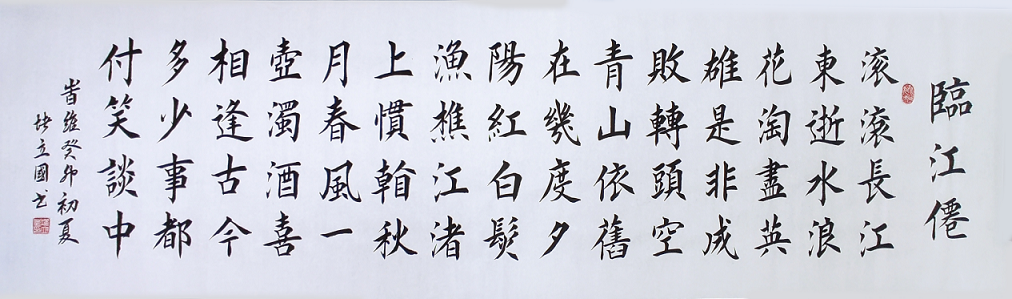 臨江僊
滚滚長江
東逝水浪
花淘盡英
雄是非成
敗轉頭空
青山依舊
在幾度夕
陽紅白髮
漁樵江渚
上慣秋
月春風一
壺濁酒喜
相逢古今
多少事都
付笑談中
旹維癸卯初夏
張立國书